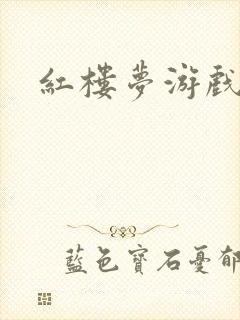 紅樓夢游戲
藍色寶石憂郁